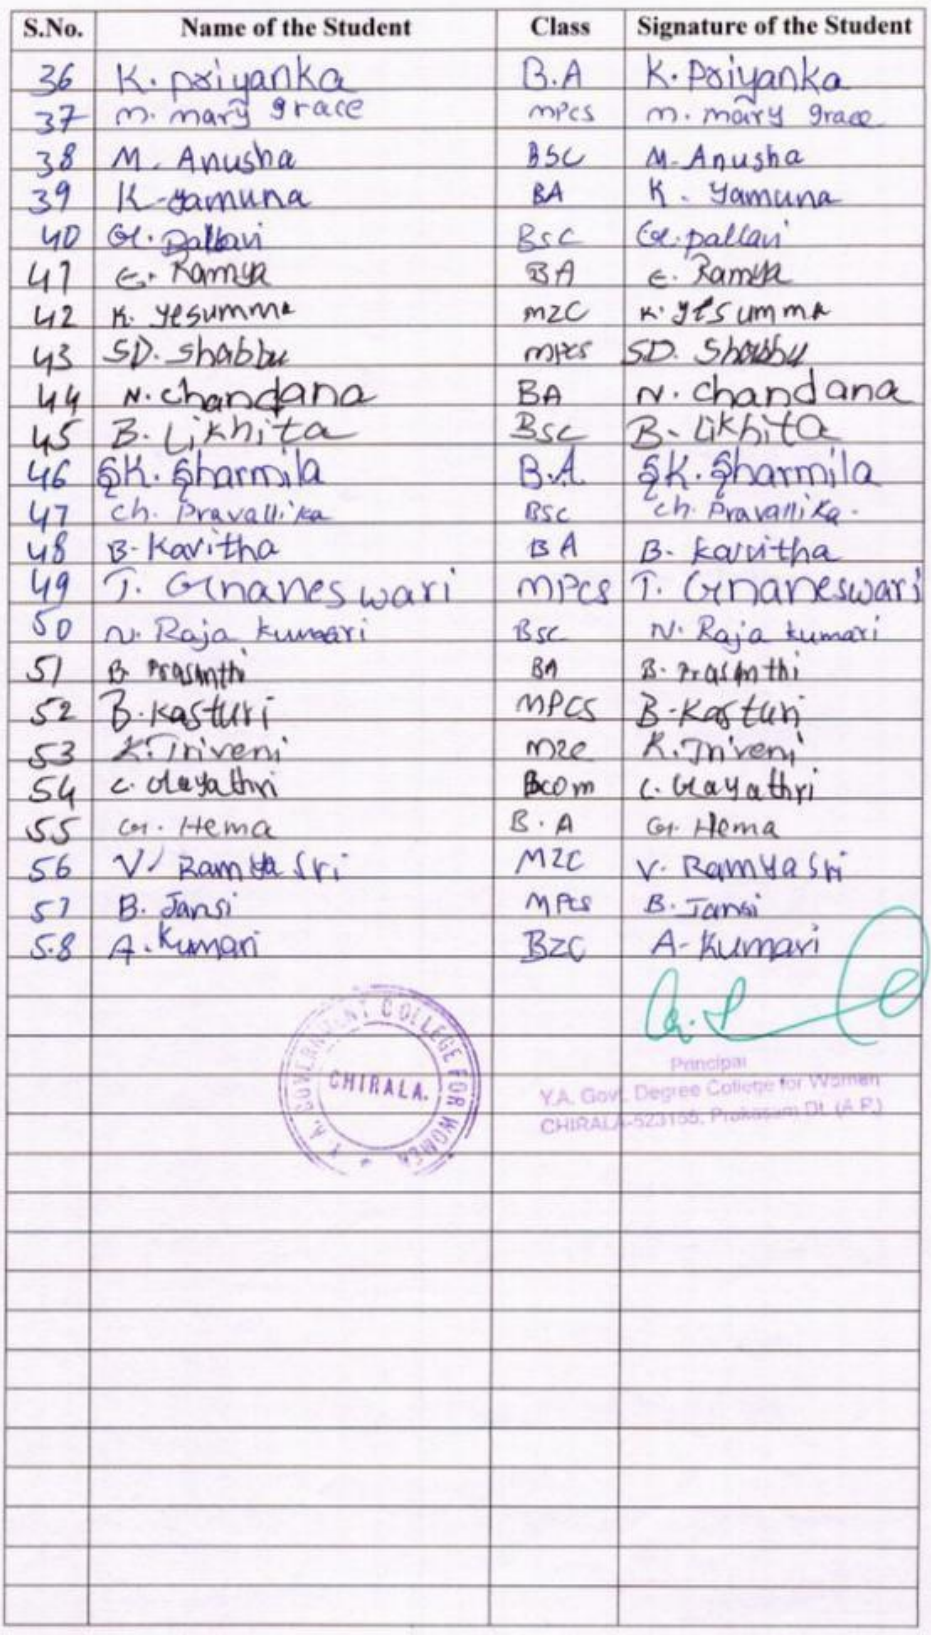 S.No. Name of the Student Class Signature of the Student
36 K. priyanka B.A K. Priyanka
37 m. mary grace mpcs m. mary grace
38 M. Anusha BSC M. Anusha
39 K. yamuna BA K. yamuna
40 G. pallavi BSC G. pallavi
41 E. Ramya BA E. Ramya
42 K. yesumma MZC K. yesumma
43 SD. Shabbu mpcs SD. Shabbu
44 N. chandana BA N. chandana
45 B. Likhita BSC B. Likhita
46 SK. Sharmila B.A SK. Sharmila
47 ch. Pravallika BSC ch. Pravallika.
48 B. Kavitha BA B. kavitha
49 T. Gnaneswari MPCS T. Gnaneswari
50 N. Raja kumari BSC N. Raja kumari
51 B. Prasanthi BA B. Prasanthi
52 B. Kasturi MPCS B. Kasturi
53 K. Triveni MZC K. Triveni
54 C. Gayathri Bcom C. Gayathri
55 G. Hema B.A G. Hema
56 V. Ramya Sri MZC V. Ramya Sri
57 B. Jansi MPCS B. Jansi
58 A. Kumari BZC A. Kumari
Y. A. GOVERNMENT COLLEGE FOR WOMEN
CHIRALA.
Principal
Y.A. Govt. Degree College for Women
CHIRALA-523155, Prakasam Dt. (A.P.)